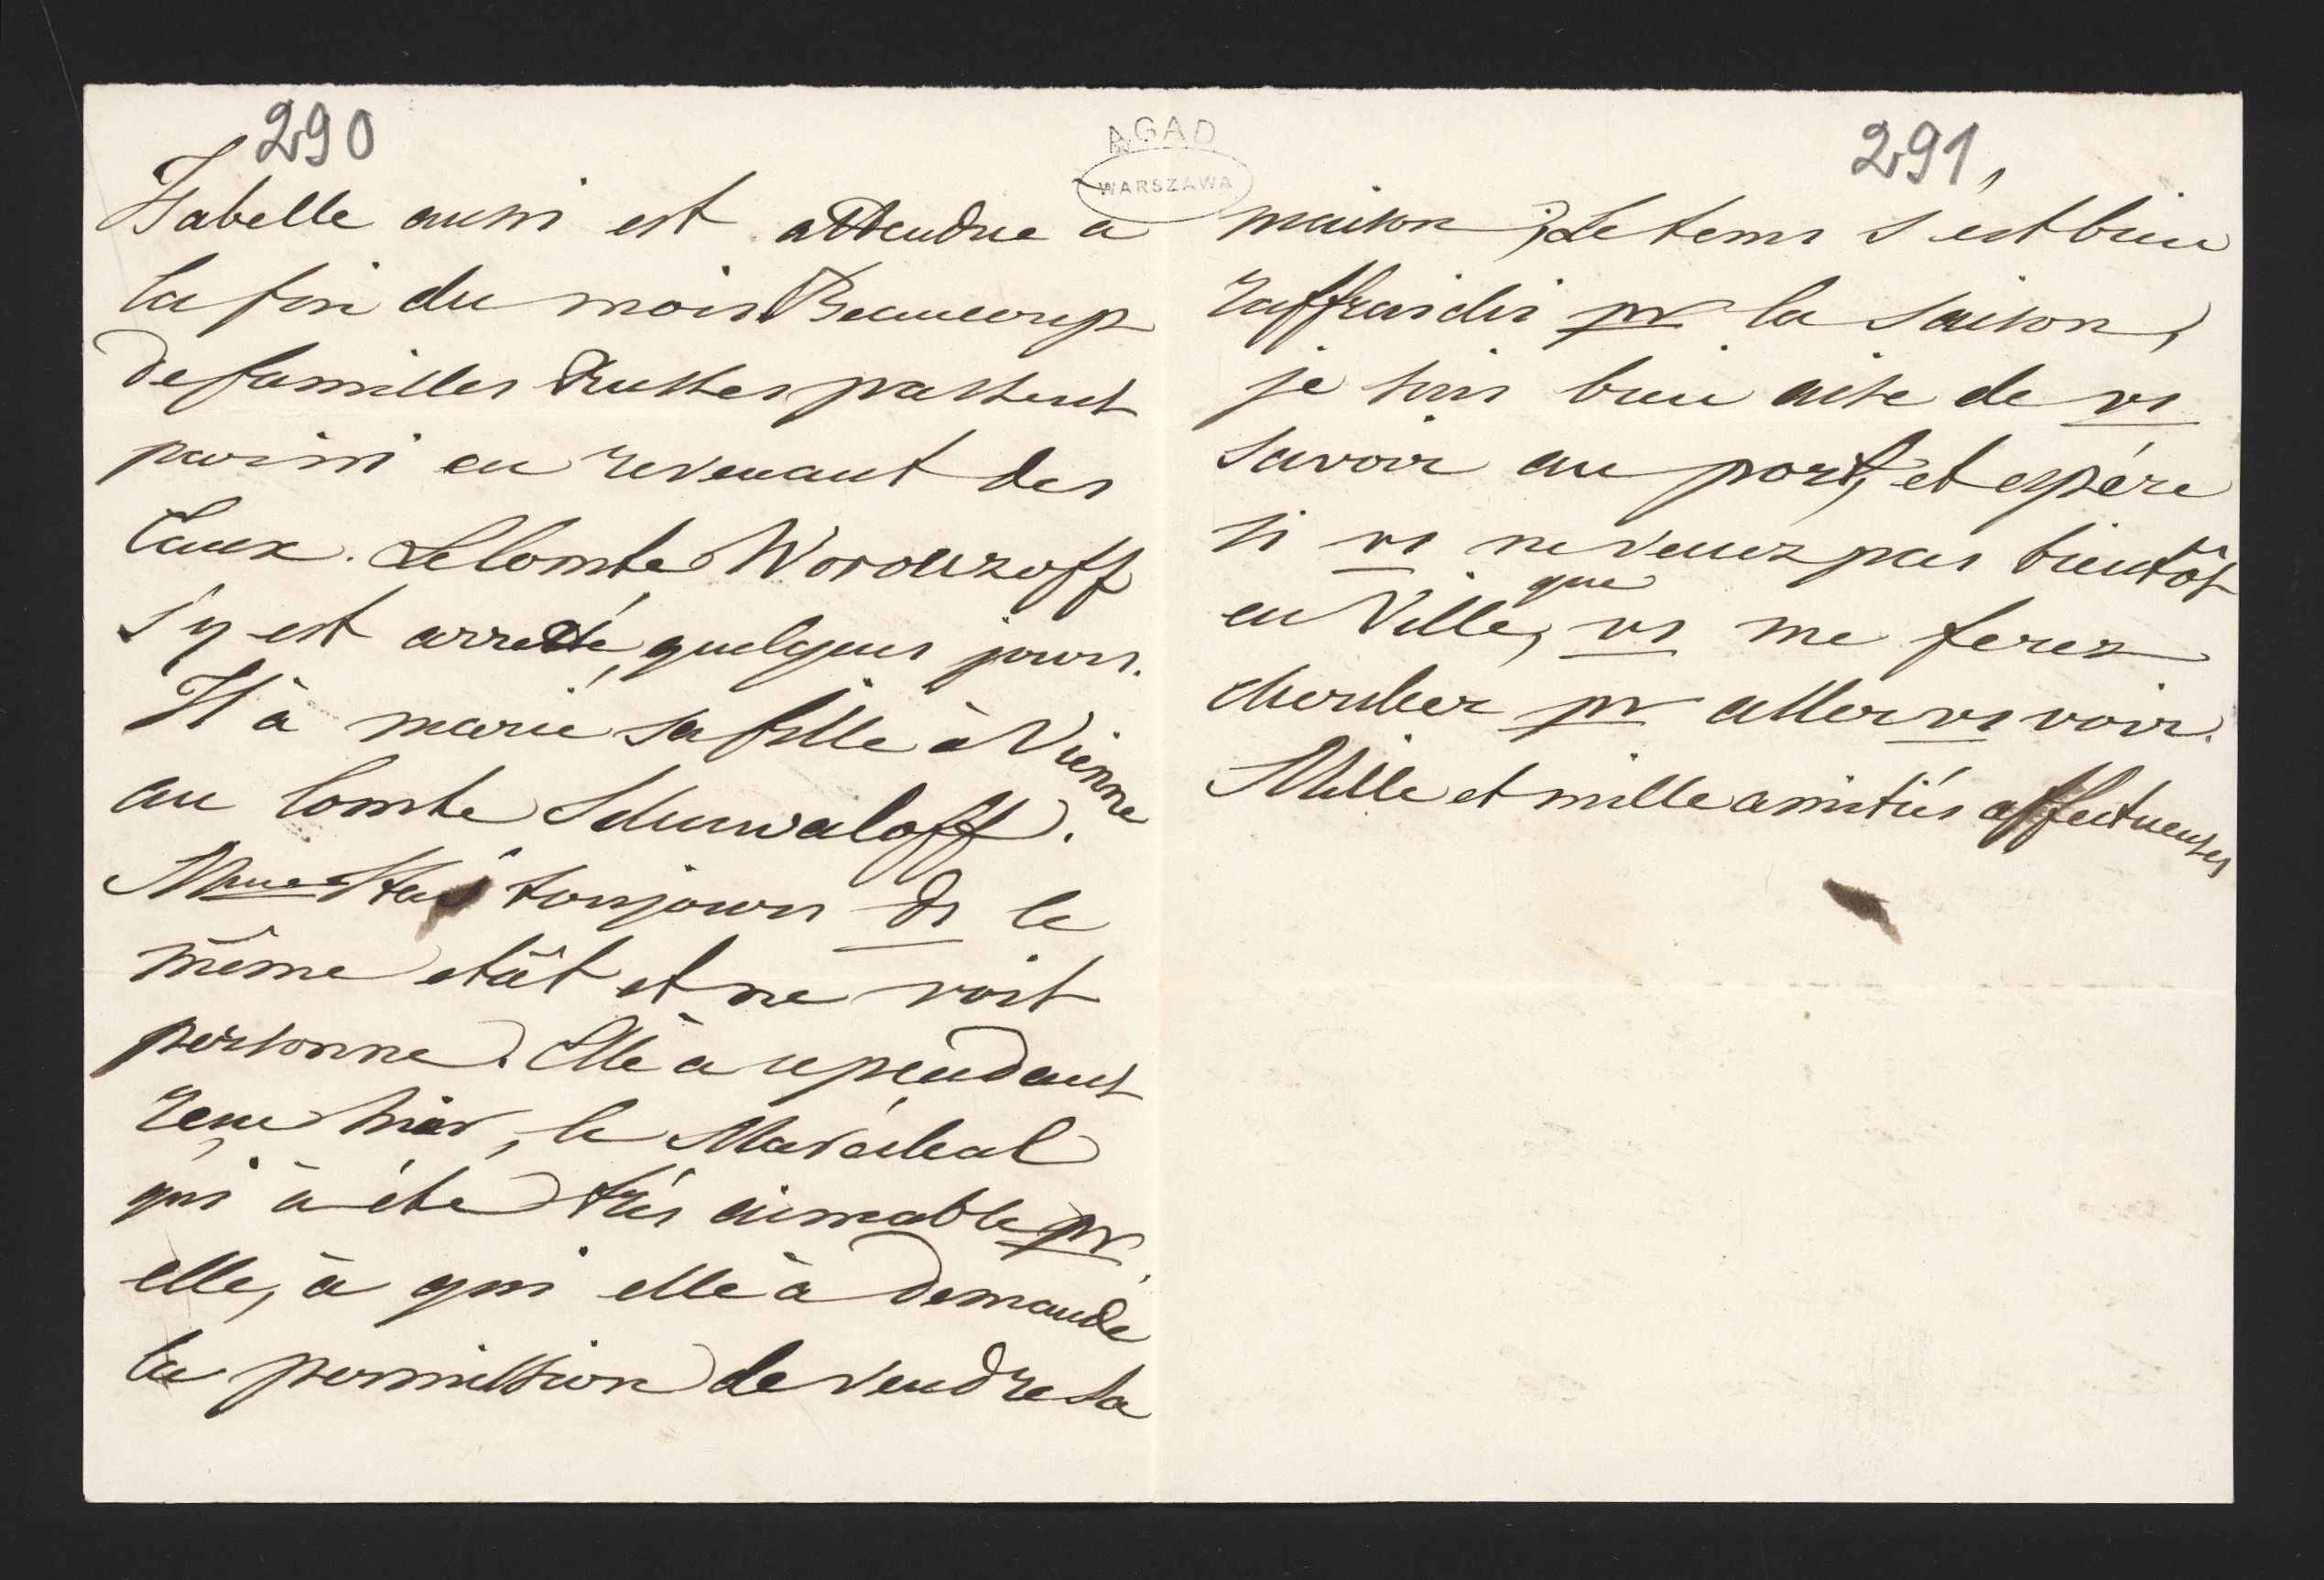 290
Isabelle aussi est attendue a
la fin du mois. Beaucoup
de familles Russes passent
par ici en revenant des
Eaux. Le Comte Woronzoff
s'y est arreté, quelques jours.
Il à marié sa fille à Vienne
au Comte Schuwaloff.
Mme toujours ds le
même etât et ne voit
personne. Elle a cependant
reçu hier, le Maréchal
qui à été trés aimable pr
elle, à qui elle à demandé
la permission de vendre sa
AGAD
WARSZAWA
291
maison; Le tems s'est bien
raffraichi pr la saison,
je suis bien aise de vs
savoir au port, et espére
si vs ne venez pas bientôt
en Ville, que vs me ferez
chercher pr aller vs voir.
Mille et mille amitiés affectueuses